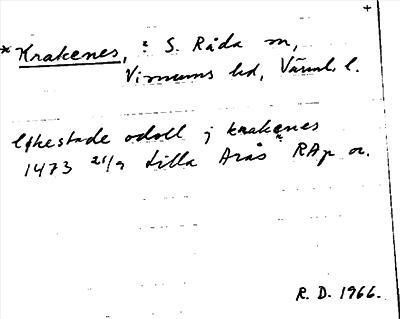 +
* Krakenes, : S. Råda sn,
Visnums hd, Värml. l.
Efkestade odoll j krakenes
1473 21/9 Lilla Arås RAp or.
R. D. 1966.